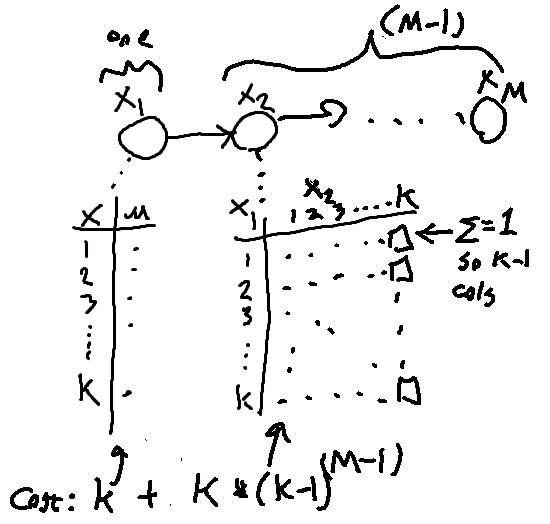 one (M-1)
X1 X2 XM
X μ
1
2
3
K
X2
X1 1 2 3 ..... K
1
2
3
K
Σ=1
so K-1
cols
Cost: K + K * (K-1)^(M-1)